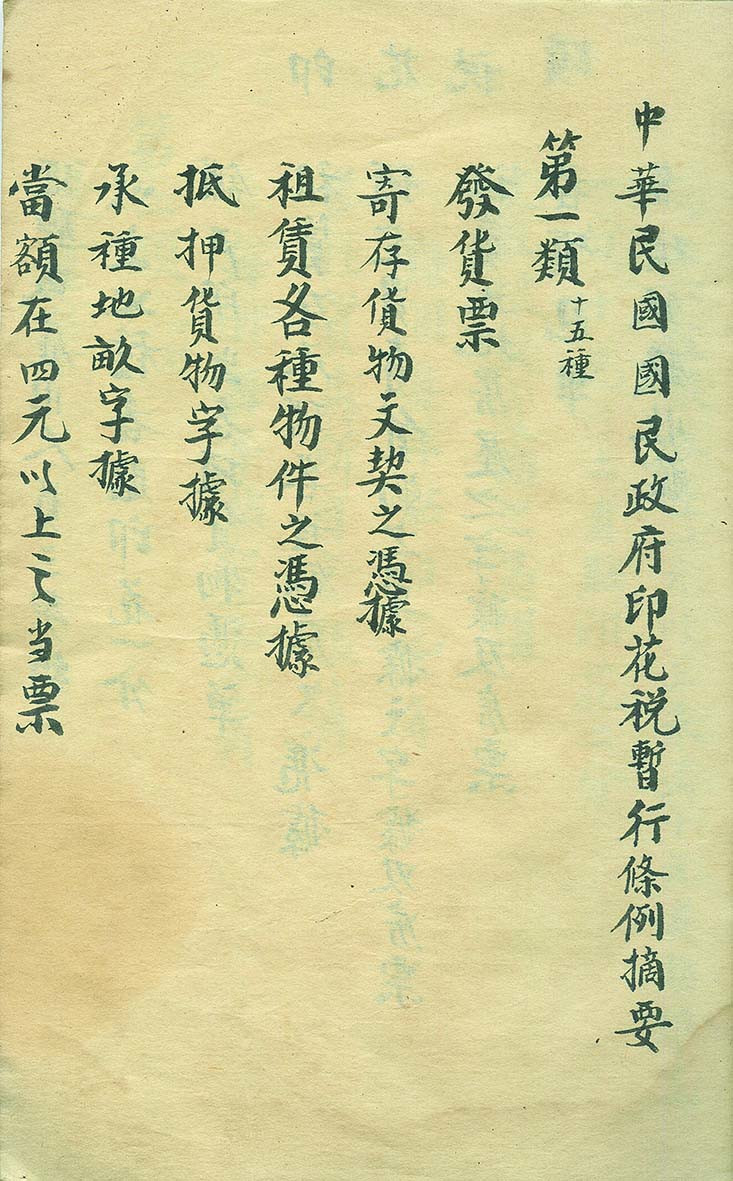 中華民國國民政府印花税暫行條例摘要
第一類十五種
發貨票
寄存貨物文契之憑據
租賃各種物件之憑據
抵押貨物字據
承種地畝字據
當額在四元以上之当票